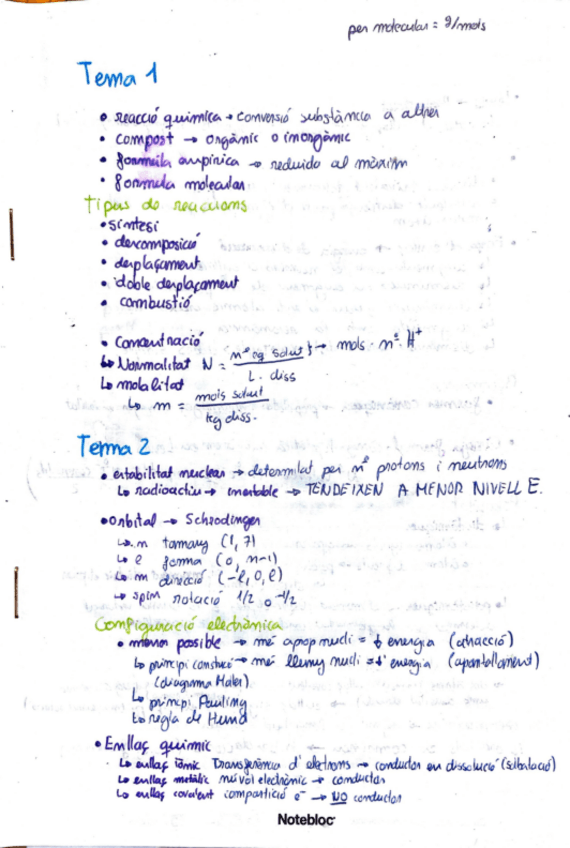 pes molecular = g/mols
Tema 1
• reacció química → conversió substància a altres
• compost → orgànic o inorgànic
• formula empírica → reduido al màxim
• formula molecular
Tipus de reaccions
• síntesi
• descomposició
• desplaçament
• doble desplaçament
• combustió
• Concentració
↳ Normalitat N = nº eq solut / L. diss } → mols · nº H⁺
↳ molalitat
↳ m = mols solut / kg diss.
Tema 2
• estabilitat nuclear → determilat per nº protons i neutrons
↳ radioactiu → inestable → TENDEIXEN A MENOR NIVELL E.
• Orbital → Schrodinger
↳ n tamany (1, 7)
↳ l forma (0, n-1)
↳ m direcció (-l, 0, l)
↳ spin rotació 1/2 o -1/2
Configuració electrònica
• menor possible → més aprop nucli = ↓ energia (atracció)
↳ principi construcció → més lluny nucli = ↑ energia (apantallament)
(diagrama Moller)
↳ principi Pauling
↳ regla de Hund
• Enllaç químic
↳ enllaç iònic Transferència d'electrons → conductor en dissolució
↳ enllaç metàlic núvol electrònic → conductor
↳ enllaç covalent compartició e⁻ → NO conductor
Notebloc